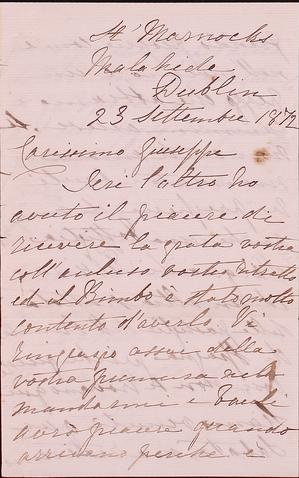 St Marnocks
Malahide
Dublin
23 Settembre 1872
Carissimo Giuseppe
Ieri l'altro ho
avuto il piacere di
ricevere la grata vostra
coll' vostro ritratto
ed il Bimbo è stato molto
contento d'averlo. Vi
ringrazio assai della
vostra premura nel
mandarmi e
avrò piacere quando
arrivano perche e